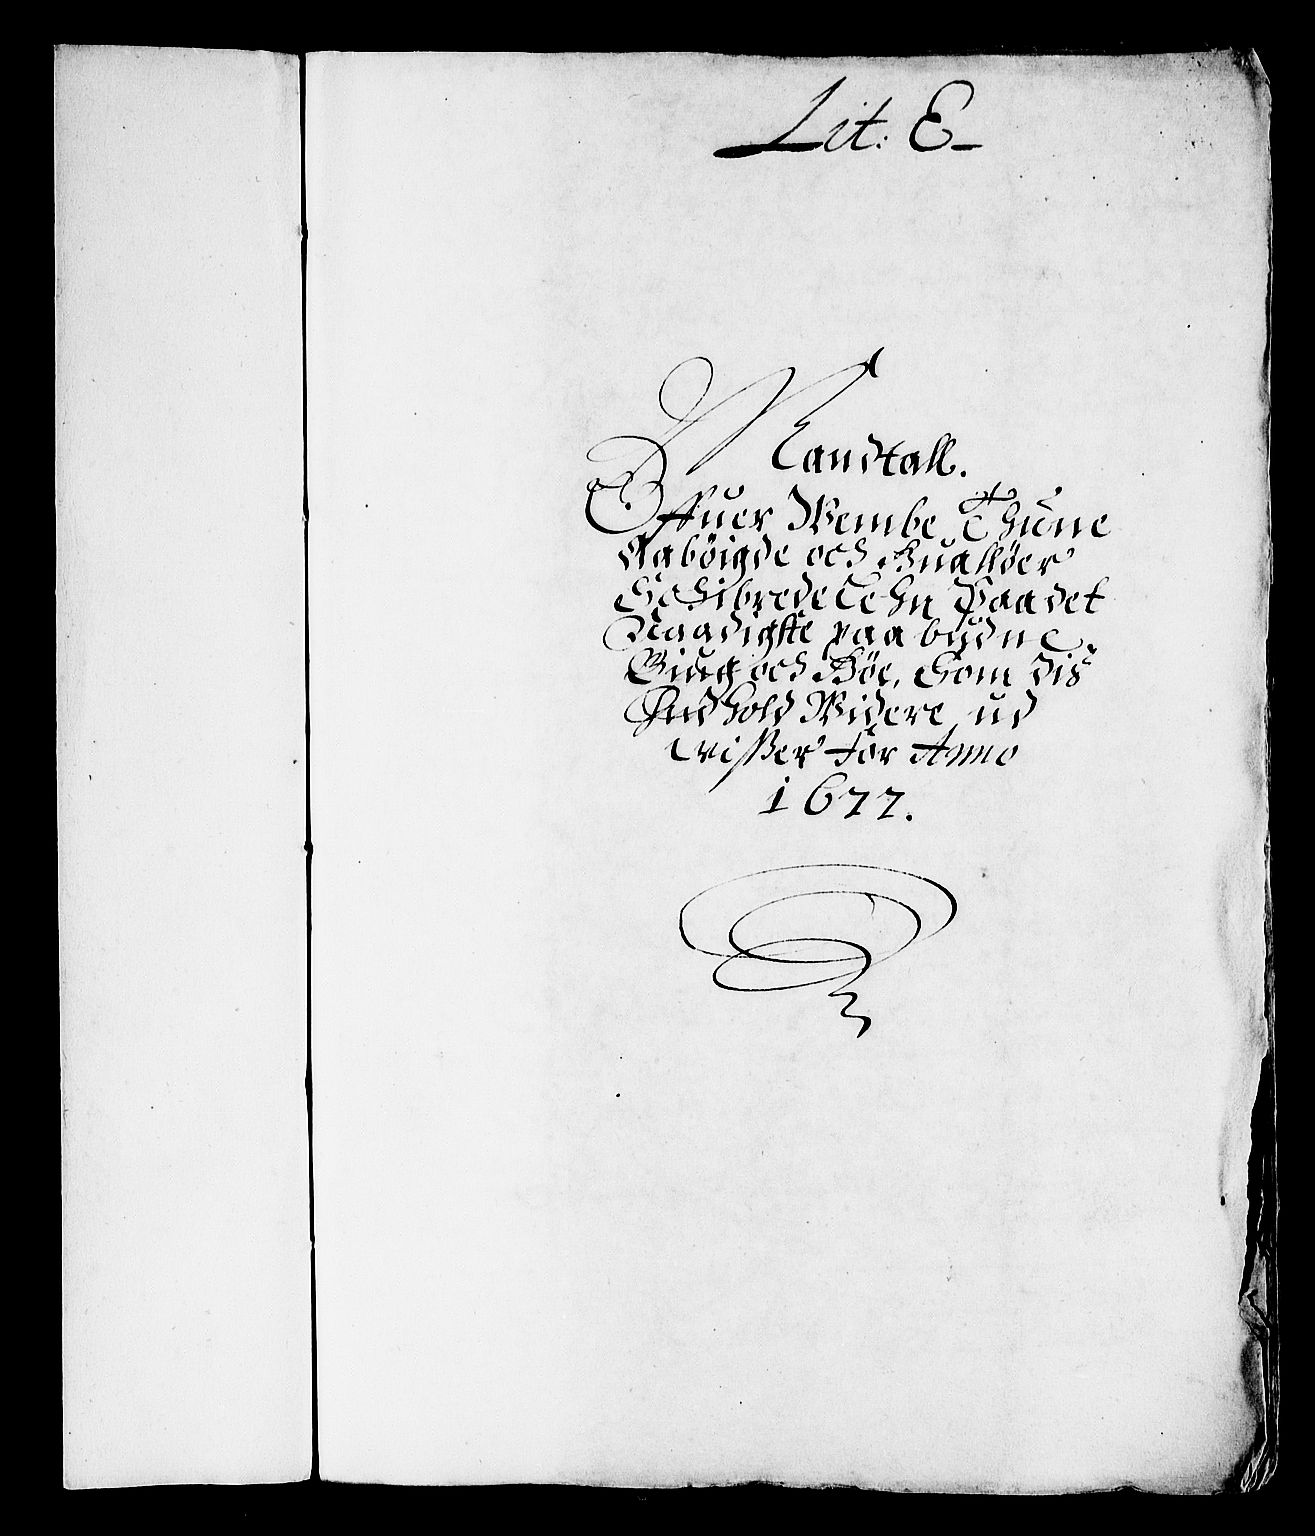 Lit: E
Mandtall.
Offuer Wembe, Thune
Aabøigde och Huallöer
Schibrede Lehn Paa det
Naadigste paa budne
Giug och Høe, Som dis
Indhold Widere ud
wisßer for Anno
1677.